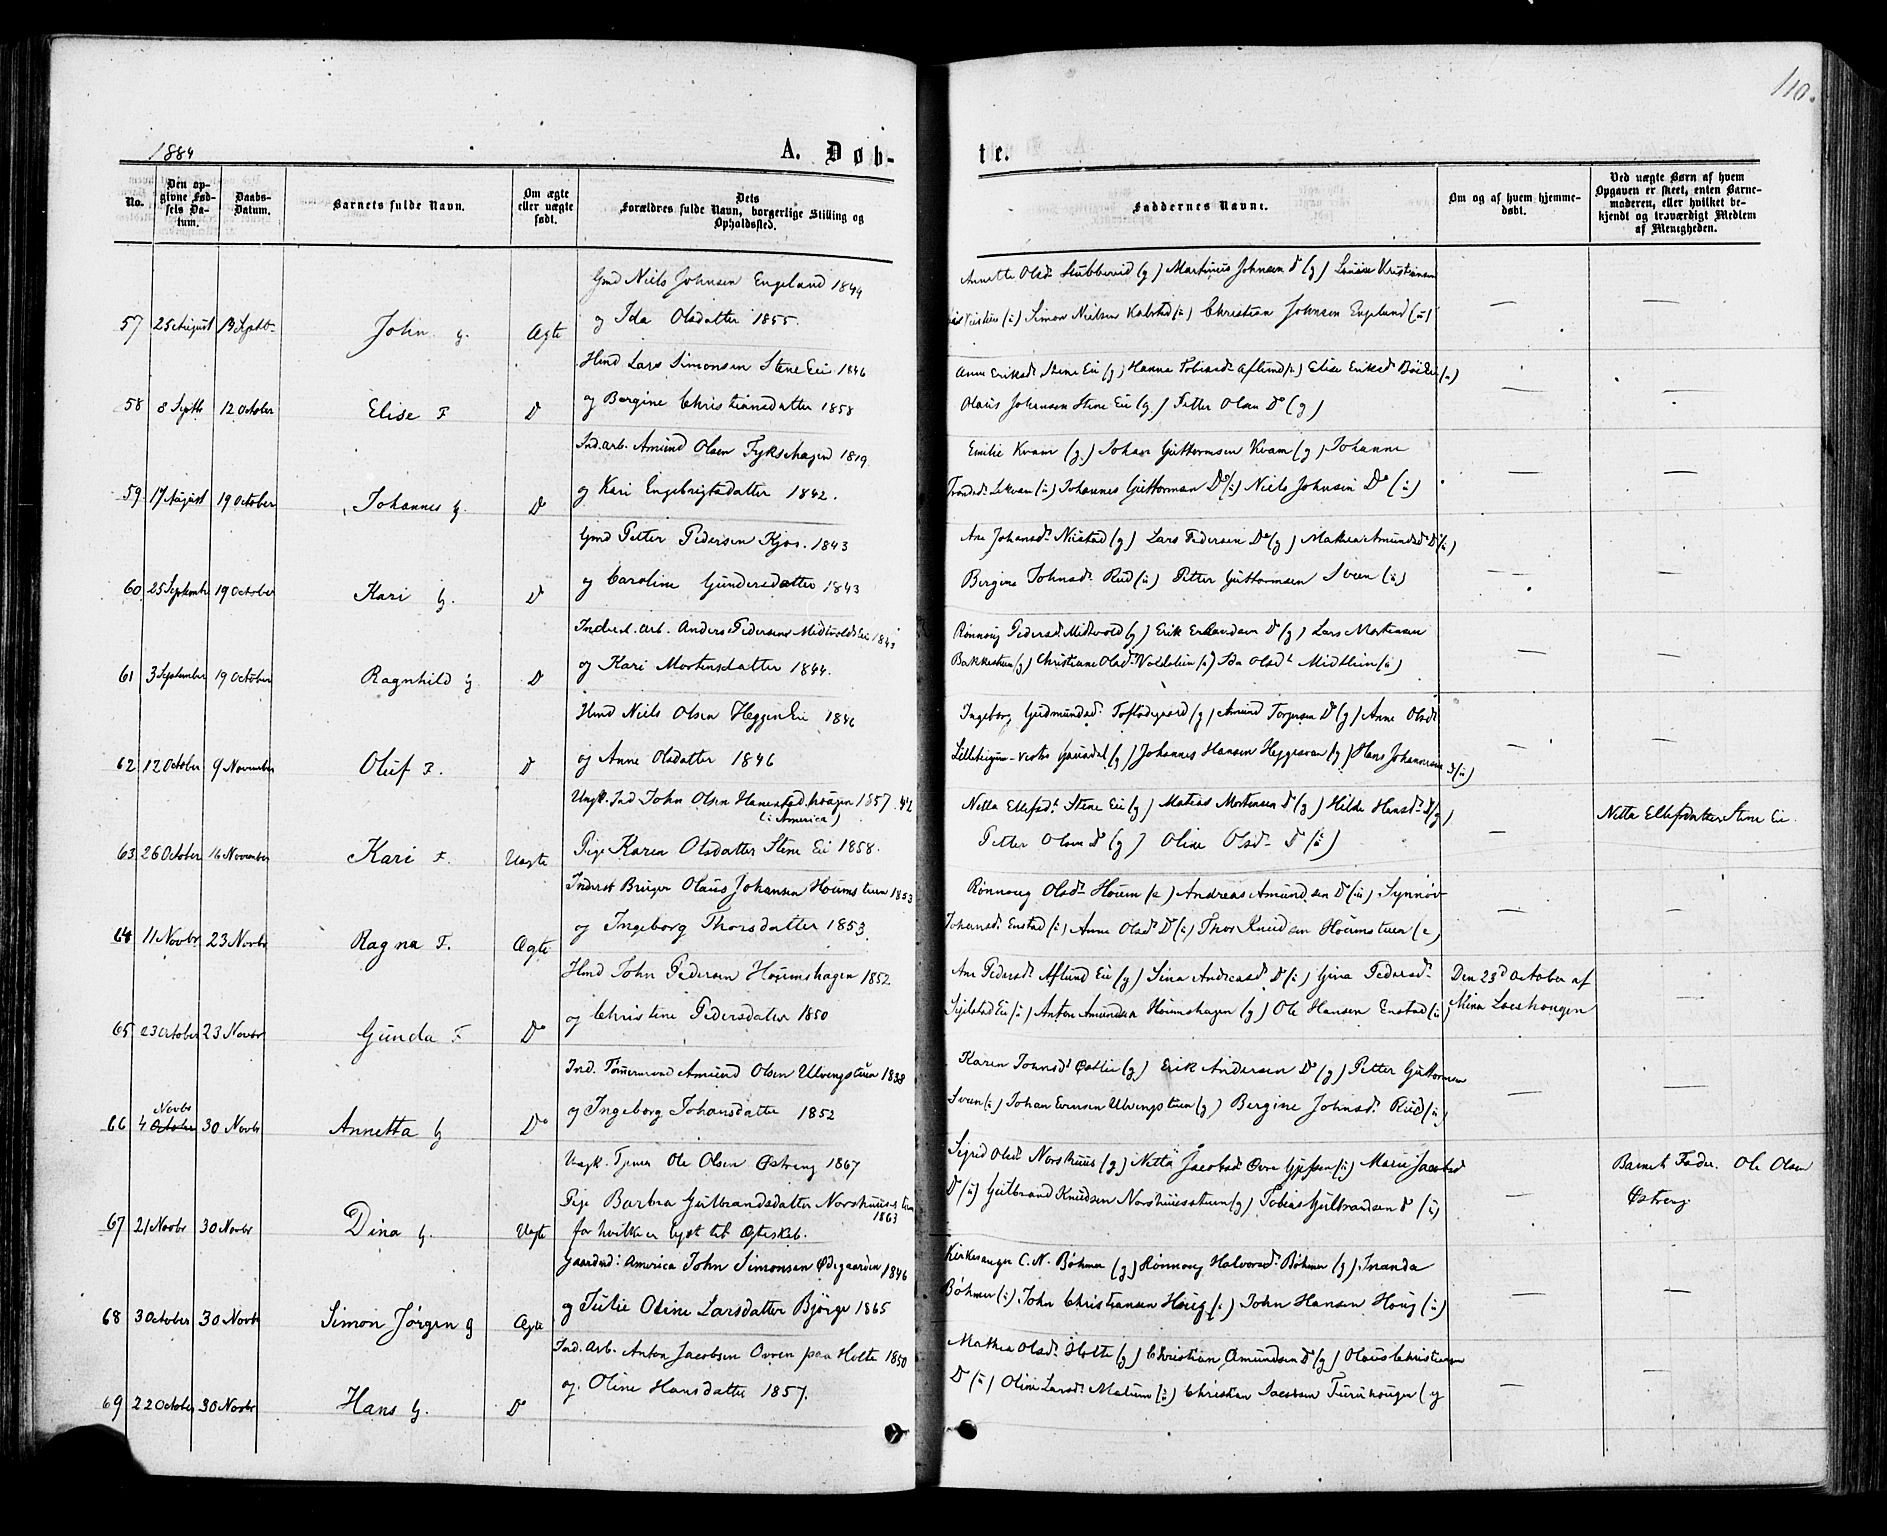 110.
1884
A. Døb-
te.
No.
Den op-
givne Fød-
sels Da-
tum.
Daabs-
Datum.
Barnets fulde Navn.
Om ægte
eller uægte
født.
Dets
Forældres fulde Navn, borgerlige Stilling og
Opholdssted.
Faddernes Navne.
Om og af hvem hjemme-
døbt.
Ved uægte Børn af hvem
Opgaven er skeet, enten Barne-
moderen, eller hvilket be-
kjendt og troværdigt Medlem
af Menigheden.
Gmd Niels Johnsen Engeland 1844
Annette Olsd. Stubberud (g) Martinius Johnsen D (g) Lovise Kristiansen
57 25 August 13 Septb. John g. Ægte og Ida Olsdatter 1855.
(ú) Simon Nielsen Kalstad (ú) Christian Johnsen Engelund (ú)
— —
Hmd Lars Simonsen Stene Eie 1846
Anne Eriksd. Stene Eie (g) Hanna Tobiasd. Aflund (ú) Elise Eriksd.
58 8 Septb 12 October Elise F D og Bergine Christiansdatter 1858
Olaus Johansen Stene Eie (g) Petter Olsen Do (g)
— —
Ind. arb. Amund Olsen Fykshagen 1819.
Emilie Kvam (g) Johan Guttormsen Kvam (g) Johanne
59 17 August 19 October Johannes g. D og Kari Engebrigtsdatter 1842.
Trondsd. (ú) Johannes Guttorman Do (ú) Niels Johnsen Do (ú)
— —
Gmd Petter Pedersen Kjos. 1843
Ane Johansd. Niistad (g) Lars Pedersen Do (g) Mathea Amundsd. D (ú)
60. 25 September 19 October Kari g. D og Caroline Gundersdatter 1843
Bergine Johnsd. Rud (ú) Petter Guttormsen Sveen (ú)
— —
Inderst. arb. Anders Pedersen Midtvold Eie 1843
Rønnoug Pedersd. Midtvold (g) Erik Erlandsen D (g) Lars Mortensen
61 3 September 19 October Ragnhild g D og Kari Mortensdatter 1844.
Bakkestuen (g) Christiane Olsd. (ú) Ida Olsd. Midtlien (ú)
— —
Hmd Niels Olsen Heggen Eie 1846
Ingeborg Gudmundsd. Toftodegaard (g) Amund Torgersen D (g) Anne Olsd.
62 12 October 9 November Oluf F. D og Anne Olsdatter 1846
(g) Johannes Hansen Heggesveen (g) Hans Johannesen D (ú)
— —
Ungk. Ind John Olsen 1857.
(i America)
Netta Ellefsd. Stene Eie (g) Matias Mortensen D (g) Hilda Hansd. D (g)
Netta Ellefsdatter Stene Eie.
63 26 October 16 November Kari F. Uægte Pige Karen Olsdatter Stene Eie 1858.
Petter Olsen D (g) Oline Olsd. D (ú)
—
Inderst Bruger Olaus Johansen Houmstuen 1853
Rønnoug Olsd. Houm (e) Andreas Amundsen D (ú) Synnøv
64 11 Novbr 23 Novbr Ragna F. Ægte og Ingeborg Thorsdatter 1853.
Johansd. Enstad (ú) Anne Olsd. D (ú) Thor Knudsen Houmstuen (e)
— —
Hmd John Pedersen Houmshagen 1852.
Ane Pedersd. Aflund Eie (g) Sina Andreasd. D (ú) Gina Pedersd.
Den 23d October af
65 23 October 23 Novbr Gunda F Do og Christine Pedersdatter 1850
Sijelstad Eie (ú) Anton Amundsen Houmshagen (g) Ole Hansen Enstad (ú)
Mina Loeshougen
—
Ind. Tømmermand Amund Olsen Ulvengstuen 1838
Karen Johnsd. Østlie (g) Erik Andersen D (g) Petter Guttormsen
Novbr
66 4 October 30 Novbr Annetta g Do og Ingeborg Johansdatter 1852
Sveen (ú) Johan Evensen Ulvengstuen (g) Bergine Johnsd. Rud (ú)
—
Ungk. Tjener Ole Olsen Østreng 1867
Sigrid Olsd. Norshuus (g) Netta Jacobsd. Øvre (ú) Marie Jacobsd
Barnets Fader. Ole Olsen
Pige Barbra Gulbrandsdatter Norshuusstuen
1863
D (ú) Gulbrand Knudsen Norshuusstuen (g) Tobias Gulbrandsen D (ú)
Østreng
67 21 Novbr 30 Novbr Dina g. Uægte for hvilke er lyst til Ægteskab.
—
Gaardmd i America John Simonsen Ødegaarden 1846
Kirkesanger C. N. Bøhmer (g) Rønnoug Halvorsd. Bøhmer (g) Inanda
68 3 October 30 Novbr Simon Jørgen g Ægte og Julie Oline Larsdatter Bjørge 1865
Bøhmer (ú) John Christiansen Houg (ú) John Hansen Houg (ú)
— —
Ind. Arb. Anton Jacobsen Ovren paa Holte 1850
Mathea Olsd. Holte (g) Christian Amundsen D (g) Olaus Christiansen
69 22 October 30 Novbr Hans g. D og Oline Hansdatter 1857.
D (ú) Oline Larsd. Malum (ú) Christian Jacobsen (g)
— —